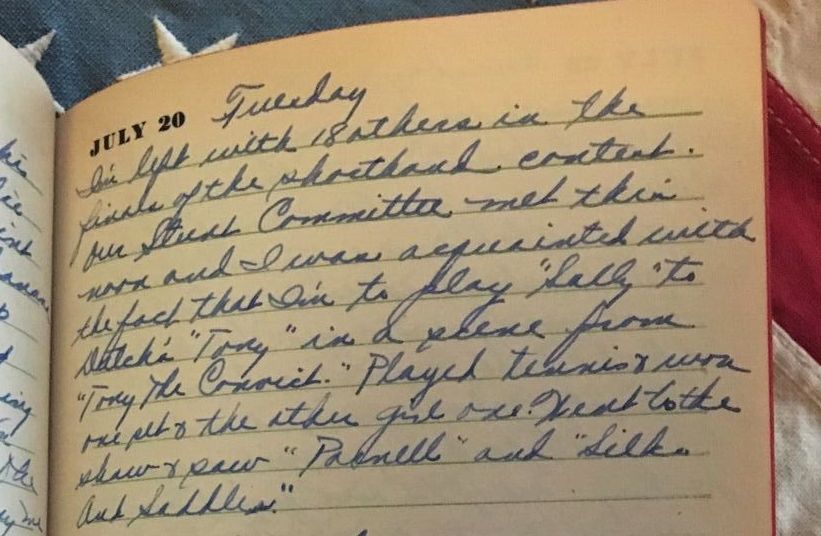 JULY 20 Tuesday
I'm left with 18 others in the
finals of the shorthand contest.
Our Stunt Committee met this
noon and I was acquainted with
the fact that I'm to play "Sally" to
Dutch's "Tony" in a scene from
"Tony The Convict." Played tennis & won
one set & the other girl one. Went to the
show & saw "Parnell" and "Silks
And Saddles."